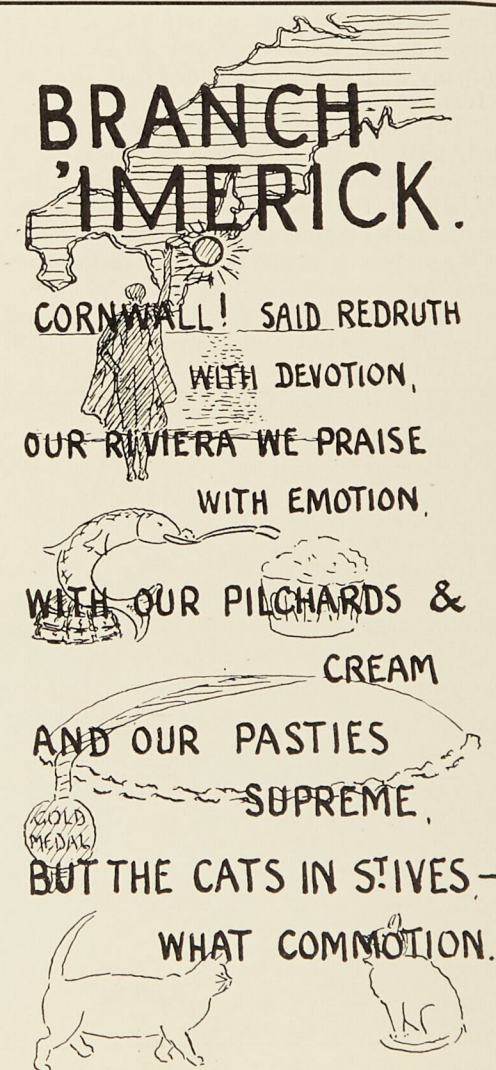 BRANCH
'IMERICK.
CORNWALL! SAID REDRUTH
WITH DEVOTION,
OUR RIVIERA WE PRAISE
WITH EMOTION,
WITH OUR PILCHARDS &
CREAM
CREAM
AND OUR PASTIES
SUPREME,
GOLD
MEDAL
BUT THE CATS IN ST. IVES,—
WHAT COMMOTION.